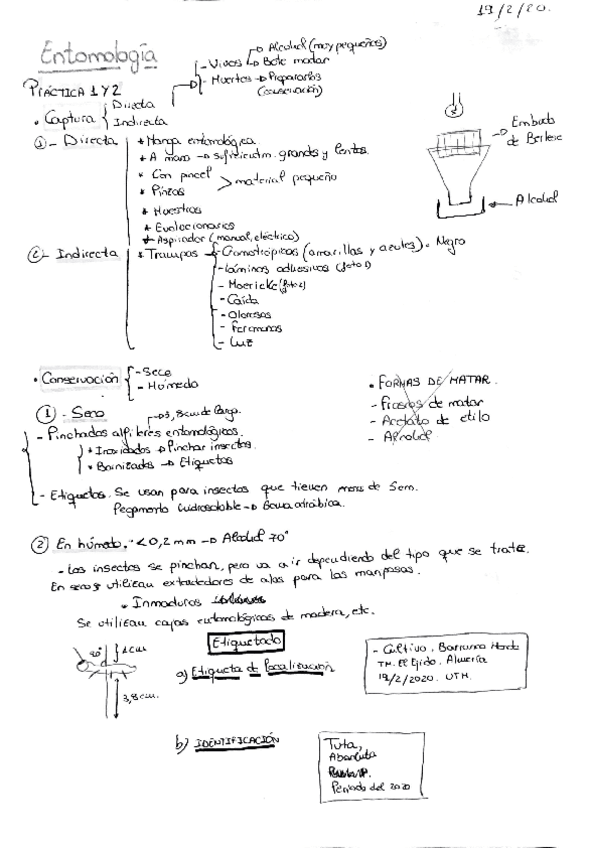 19/2/20.
Entomología
- Vivos → Alcohol (muy pequeños)
→ Bote matar
- Muertos → Prepararlos
(conservación)
PRÁCTICA 1 Y 2
• Captura { Directa
Indirecta
① - Directa
* Manga entomológica
* A mano → suficientem. grandes y lentos.
* Con pincel
* Pinzas
> material pequeño
* Muestreos
* Evolucionarios
* Aspirador (manual, eléctrico)
Embudo
de Berlese
Alcohol
② - Indirecta
* Trampas
- Cromotrópicas (amarillas y azules). Negro
- Láminas adhesivas (foto 1)
- Moericke (foto 2)
- Caída
- Olorosas
- Feromonas
- Luz
• Conservación { - Seco
- Húmedo
① - Seco
→ 3,8 cm de largo.
- Pinchados alfileres entomológicos.
* Inoxidados → Pinchar insectos.
* Barnizados → Etiquetas
- Etiquetas. Se usan para insectos que tienen menos de 5mm.
Pegamento hidrosoluble →
• FORMAS DE MATAR.
- Frascos de matar
- Acetato de etilo
- Alcohol
② En húmedo. <0,2 mm → Alcohol 70°
- Los insectos se pinchan, pero va a ir dependiendo del tipo que se trate.
En seco y utilizan extendedores de alas para las mariposas.
• Inmaduros
Se utilizan cajas entomológicas de madera, etc.
90°
1 cm
3,8 cm.
Etiquetado
a) Etiqueta de localización
- Cultivo. Barranco
TM. El Ejido. Almería
19/2/2020. UTM.
b) IDENTIFICACIÓN
Tuta,
Absoluta
Periodo del 2020